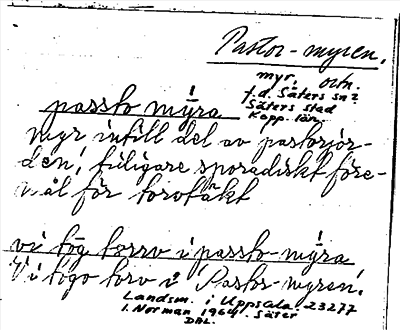 Pastor-myren.
myr, ortn.
f.d. Säters sn 2
Säters stad
Kopp. län,
passto mýra
myr intill del av pastorjor-
den, tidigare sporadiskt före-
mål för torvtäkt
vi tög torrv i passto-mýra
Vi togo torv i Pastor-myren.
Landsm. i Uppsala 23277
I. Norman 1964. Säter
DAL.